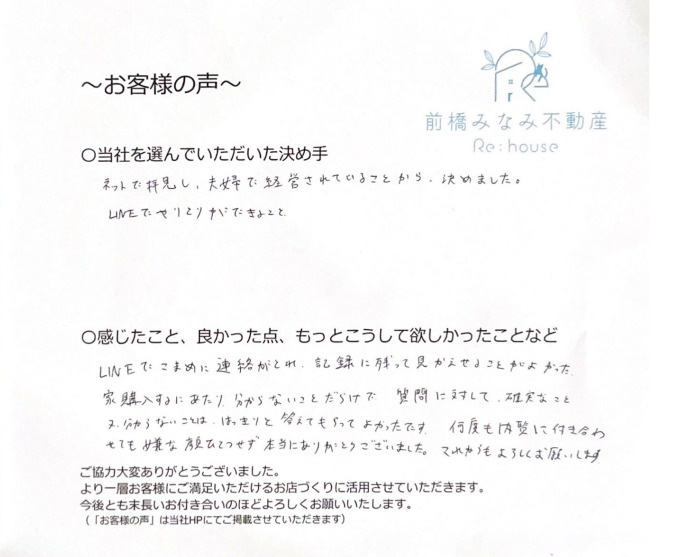 ～お客様の声～
前橋みなみ不動産
Re:house
○当社を選んでいただいた決め手
ネットで拝見し、夫婦で経営されていることから、決めました。
LINEでやりとりができること
○感じたこと、良かった点、もっとこうして欲しかったことなど
LINEでこまめに連絡がとれ、記録に残って見かえせることがよかった。
家購入するにあたり分からないことだらけで 質問に対して、確実なこと
又、分からないことは、はっきりと答えてもらってよかったです。 何度も内覧に付き合わ
せても嫌な顔ひとつせず本当にありがとうございました。これからもよろしくお願いします
ご協力大変ありがとうございました。
より一層お客様にご満足いただけるお店づくりに活用させていただきます。
今後とも末長いお付き合いのほどよろしくお願いいたします。
（「お客様の声」は当社HPにてご掲載させていただきます）